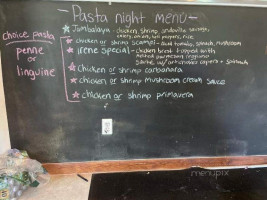 - Pasta night menu -
choice pasta
penne
or
linguine
Jambalaya - chicken, shrimp, andouille sausage,
celery, onion, bell peppers, rice
chicken or shrimp scampi - diced tomato, spinach, mushroom
irene special - chicken breast topped with
melted parmesan
sauce w/ artichokes capers + spinach
chicken or shrimp carbonara
chicken or shrimp mushroom cream sauce
chicken or shrimp primavera
menupix